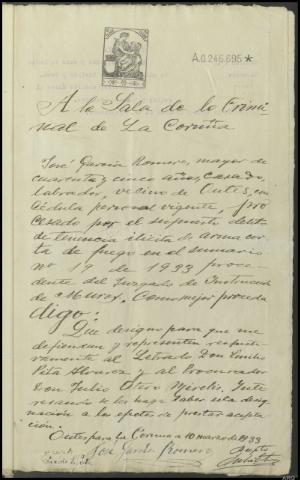 A.0.246.695*
A la Sala de lo Crimi-
nal de La Coruña
José García Romero, mayor de
cuarenta y cinco años, casado,
labrador, vecino de Outes, con
cédula personal vigente, pro-
cesado por el supuesto delito
de tenencia ilícita de arma cor-
ta de fuego en el sumario
nº 19 de 1933 proce-
dente del Juzgado de Instrucción
de Muros, como mejor proceda
digo:
Que designo para que me
defiendan y representen respecti-
vamente al Letrado Don Emilio
Pita Alvarez y al Procurador
Don Julio Otero Mirelis. Inte-
resando se les haga saber esta desig-
nación a los efectos de prestar acepta-
ción.
Outes para La Coruña a 10 marzo de 1933
José García Romero